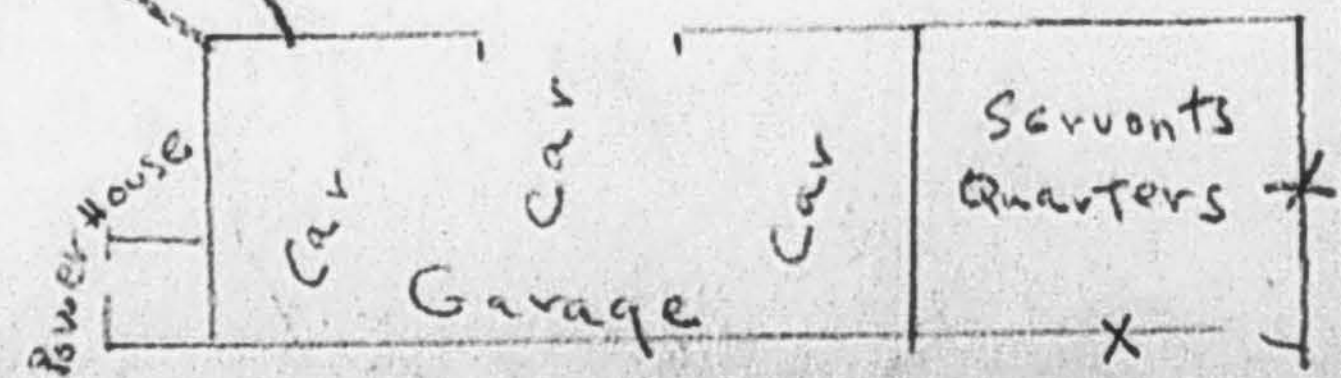 Power House
Car
Car
Car
Garage
Servonts
Quarters
X